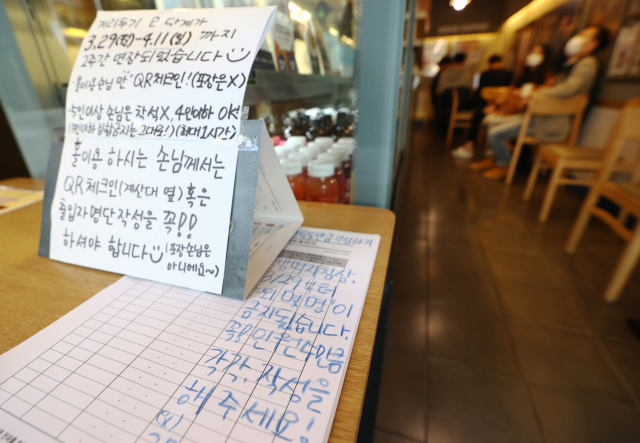 거리두기 2단계가
3.29(월)-4.11(일) 까지
2주간 연장되었습니다
"홀이용 손님 만" QR체크인! (포장은X)
5인이상 손님은 착석X, 4인이하 OK!
(5인이하 집합금지는 그대로!) (최대1시간)
홀이용 하시는 손님께서는
QR체크인(계산대 옆) 혹은
출입자명단작성을 꼭!!
하셔야 합니다 (포장손님은
아니에요~)
방역지침상,
3/29부터
"외 몇명"이
금지됩니다.
꼭! 인원수만큼
각각, 작성을
해주세요!